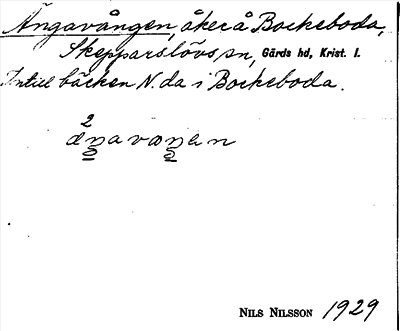 Ängavången, åker å Bockeboda,
Skepparslövs sn, Gärds hd, Krist. l.
Intill bäcken N. da i Bockeboda.
2
NILS NILSSON 1929